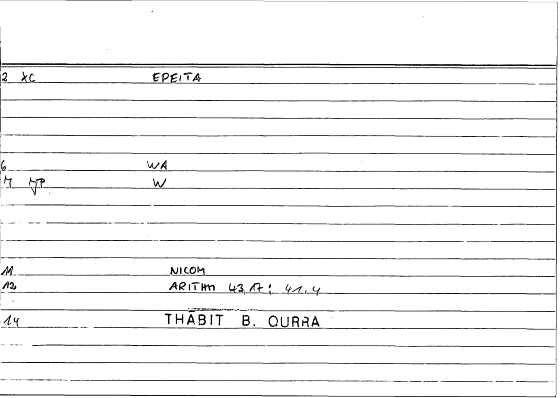 2 XC EPEITA
6 WA
M MP W
11 NICOM
12 ARITHM 43,17; 41.4
14 THĀBIT B. QURRA